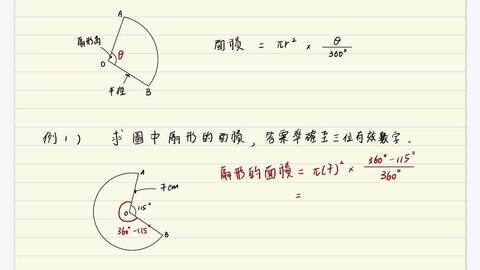 A
扇形角
θ
O
半徑
B
面積 = πr² × θ/360°
例1) 求圖中扇形的面積, 答案準確至三位有效數字.
A
7cm
O
115°
360°-115°
B
扇形的面積 = π(7)² × 360°-115°/360°
=